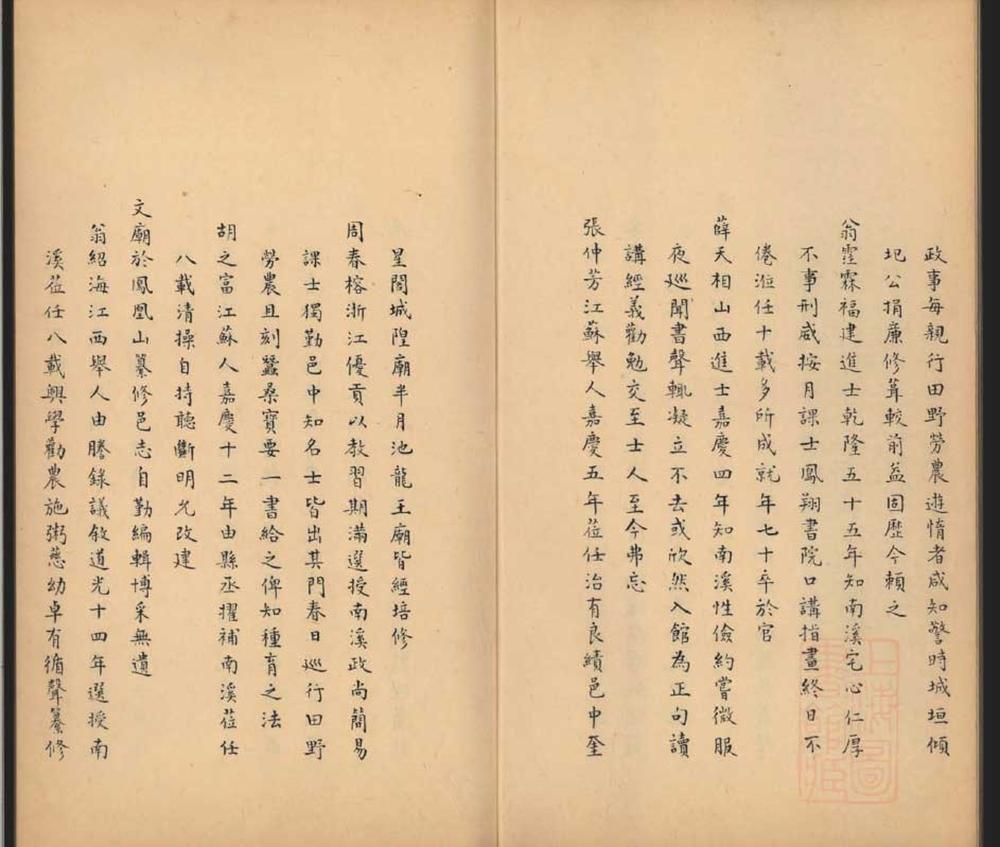 政事每親行田野勞農遊惰者咸知警時城垣傾
圮公捐廉修葺較前益固歷今賴之
翁霔霖福建進士乾隆五十五年知南溪宅心仁厚
不事刑威按月課士鳳翔書院口講指畫終日不
倦涖任十載多所成就年七十卒於官
薛天相山西進士嘉慶四年知南溪性儉約嘗微服
夜巡聞書聲輒凝立不去或欣然入館為正句讀
講經義勸勉交至士人至今弗忘
張仲芳江蘇舉人嘉慶五年莅任治有良績邑中奎
星閣城隍廟半月池龍王廟皆經培修
周春榕浙江優貢以教習期滿選授南溪政尚簡易
課士獨勤邑中知名士皆出其門春日巡行田野
勞農且刻蠶桑寶要一書給之俾知種育之法
胡之富江蘇人嘉慶十二年由縣丞擢補南溪莅任
八載清操自持聽斷明允改建
文廟於鳳凰山纂修邑志自勤編輯博采無遺
翁紹海江西舉人由謄錄議敘道光十四年選授南
溪莅任八載興學勸農施粥慈幼卓有循聲纂修